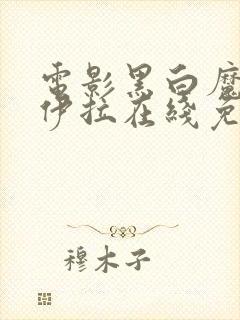 電影黑白魔
伊拉在綫免
穆木子